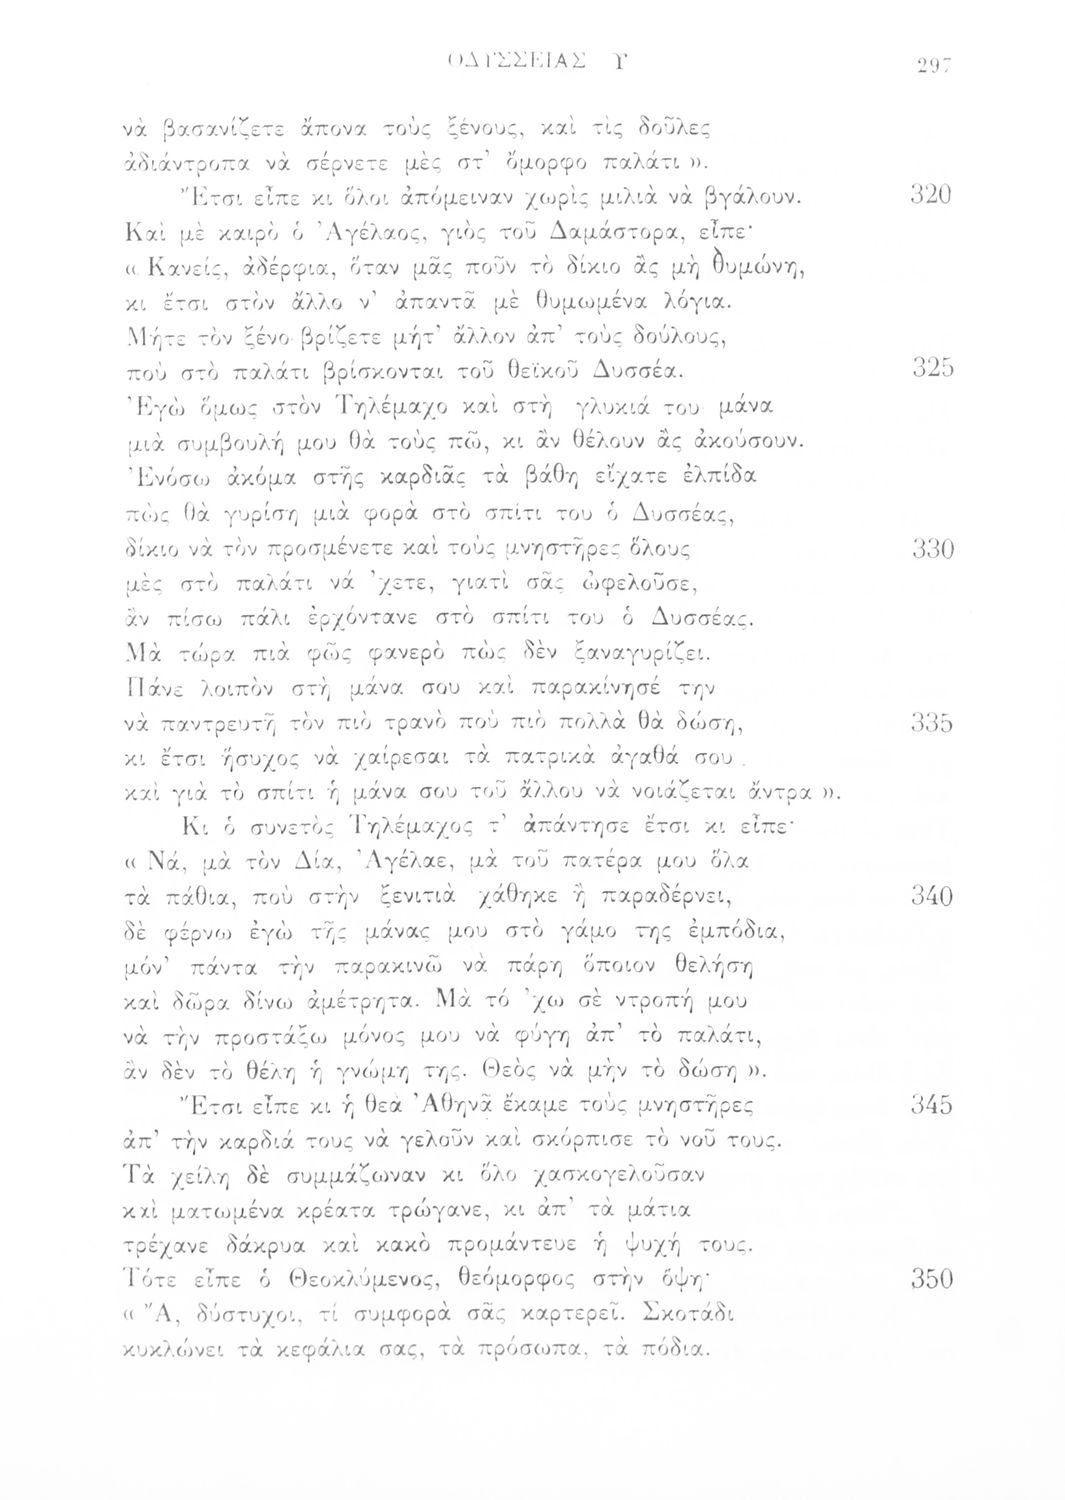 ΟΔΥΣΣΕΙΑΣ Υ 297
νὰ βασανίζετε ἄπονα τοὺς ξένους, καὶ τὶς δοῦλες
ἀδιάντροπα νὰ σέρνετε μὲς στ' ὄμορφο παλάτι ».
Ἔτσι εἶπε κι ὅλοι ἀπόμειναν χωρὶς μιλιὰ νὰ βγάλουν. 320
Καὶ μὲ καιρὸ ὁ Ἀγέλαος, γιὸς τοῦ Δαμάστορα, εἶπε·
« Κανείς, ἀδέρφια, ὅταν μᾶς ποῦν τὸ δίκιο ἂς μὴ θυμώνη,
κι ἔτσι στὸν ἄλλο ν' ἀπαντᾶ μὲ θυμωμένα λόγια.
Μήτε τὸν ξένο βρίζετε μήτ' ἄλλον ἀπ' τοὺς δούλους,
ποὺ στὸ παλάτι βρίσκονται τοῦ θεϊκοῦ Δυσσέα. 325
Ἐγὼ ὅμως στὸν Τηλέμαχο καὶ στὴ γλυκιά του μάνα
μιὰ συμβουλή μου θὰ τοὺς πῶ, κι ἂν θέλουν ἂς ἀκούσουν.
Ἐνόσω ἀκόμα στῆς καρδιᾶς τὰ βάθη εἴχατε ἐλπίδα
πὼς θὰ γυρίση μιὰ φορὰ στὸ σπίτι του ὁ Δυσσέας,
δίκιο νὰ τὸν προσμένετε καὶ τοὺς μνηστῆρες ὅλους 330
μὲς στὸ παλάτι νά 'χετε, γιατὶ σᾶς ὠφελοῦσε,
ἂν πίσω πάλι ἐρχόντανε στὸ σπίτι του ὁ Δυσσέας.
Μὰ τώρα πιὰ φῶς φανερὸ πὼς δὲν ξαναγυρίζει.
Πάνε λοιπὸν στὴ μάνα σου καὶ παρακίνησέ την
νὰ παντρευτῆ τὸν πιὸ τρανὸ ποὺ πιὸ πολλὰ θὰ δώση, 335
κι ἔτσι ἥσυχος νὰ χαίρεσαι τὰ πατρικὰ ἀγαθά σου .
καὶ γιὰ τὸ σπίτι ἡ μάνα σου τοῦ ἄλλου νὰ νοιάζεται ἄντρα ».
Κι ὁ συνετὸς Τηλέμαχος τ' ἀπάντησε ἔτσι κι εἶπε·
« Νά, μὰ τὸν Δία, Ἀγέλαε, μὰ τοῦ πατέρα μου ὅλα
τὰ πάθια, ποὺ στὴν ξενιτιὰ χάθηκε ἢ παραδέρνει, 340
δὲ φέρνω ἐγὼ τῆς μάνας μου στὸ γάμο της ἐμπόδια,
μόν' πάντα τὴν παρακινῶ νὰ πάρη ὅποιον θελήση
καὶ δῶρα δίνω ἀμέτρητα. Μὰ τό 'χω σὲ ντροπή μου
νὰ τὴν προστάξω μόνος μου νὰ φύγη ἀπ' τὸ παλάτι,
ἂν δὲν τὸ θέλη ἡ γνώμη της. Θεὸς νὰ μὴν τὸ δώση ».
Ἔτσι εἶπε κι ἡ θεὰ Ἀθηνᾶ ἔκαμε τοὺς μνηστῆρες 345
ἀπ' τὴν καρδιά τους νὰ γελοῦν καὶ σκόρπισε τὸ νοῦ τους.
Τὰ χείλη δὲ συμμάζωναν κι ὅλο χασκογελοῦσαν
καὶ ματωμένα κρέατα τρώγανε, κι ἀπ' τὰ μάτια
τρέχανε δάκρυα καὶ κακὸ προμάντευε ἡ ψυχή τους.
Τότε εἶπε ὁ Θεοκλύμενος, θεόμορφος στὴν ὄψη· 350
« Ἄ, δύστυχοι, τί συμφορὰ σᾶς καρτερεῖ. Σκοτάδι
κυκλώνει τὰ κεφάλια σας, τὰ πρόσωπα, τὰ πόδια.